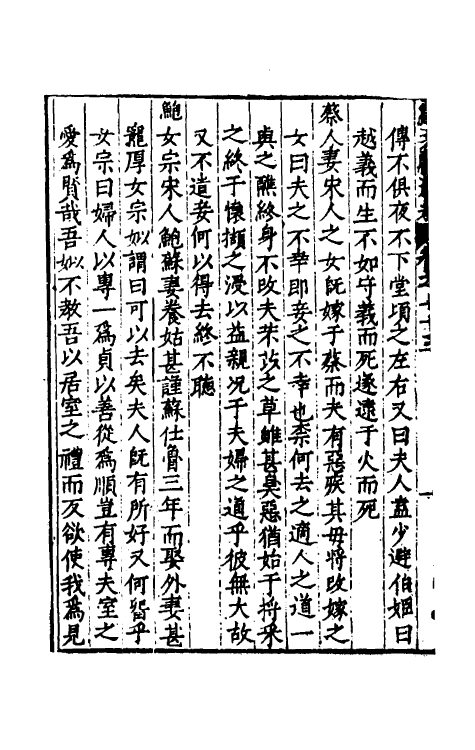 傳不俱夜不下堂頃之左右又曰夫人盍少避伯姬曰
越義而生不如守義而死遂逮于火而死
蔡人妻宋人之女既嫁于蔡而夫有惡疾其母將改嫁之
女曰夫之不幸即妾之不幸也柰何去之適人之道一
與之醮終身不改夫芣苡之草雖甚臭惡猶始于捋采
之終于懷擷之浸以益親况于夫婦之適乎彼無大故
又不遣妾何以得去終不聽
鮑女宗宋人鮑蘇妻養姑甚謹蘇仕魯三年而娶外妻甚
寵厚女宗姒謂曰可以去矣夫人既有所好又何畱乎
女宗曰婦人以專一為貞以善從為順豈有專夫室之
愛為賢哉吾姒不教吾以居室之禮而反欲使我為見